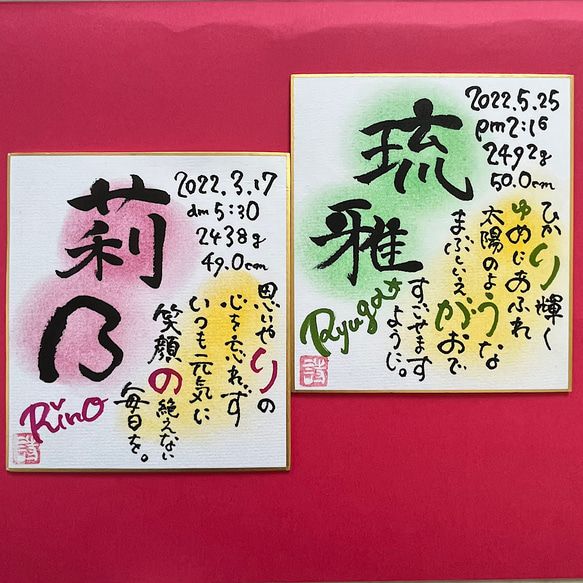 莉乃
2022.3.17
am5:30
2438g
49.0cm
思いやりの
心を忘れず
いつも元気に
笑顔の絶えない
毎日を。
Rino
詩
琉雅
2022.5.25
pm2:16
2492g
50.0cm
ひかり輝く
ゆめじあふれ
太陽のような
まぶしいえがおで
すごせます
ように。
Ryuga
詩